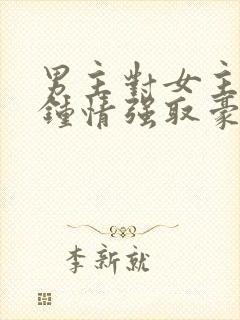 男主對女主
鍾情強取豪
李新就